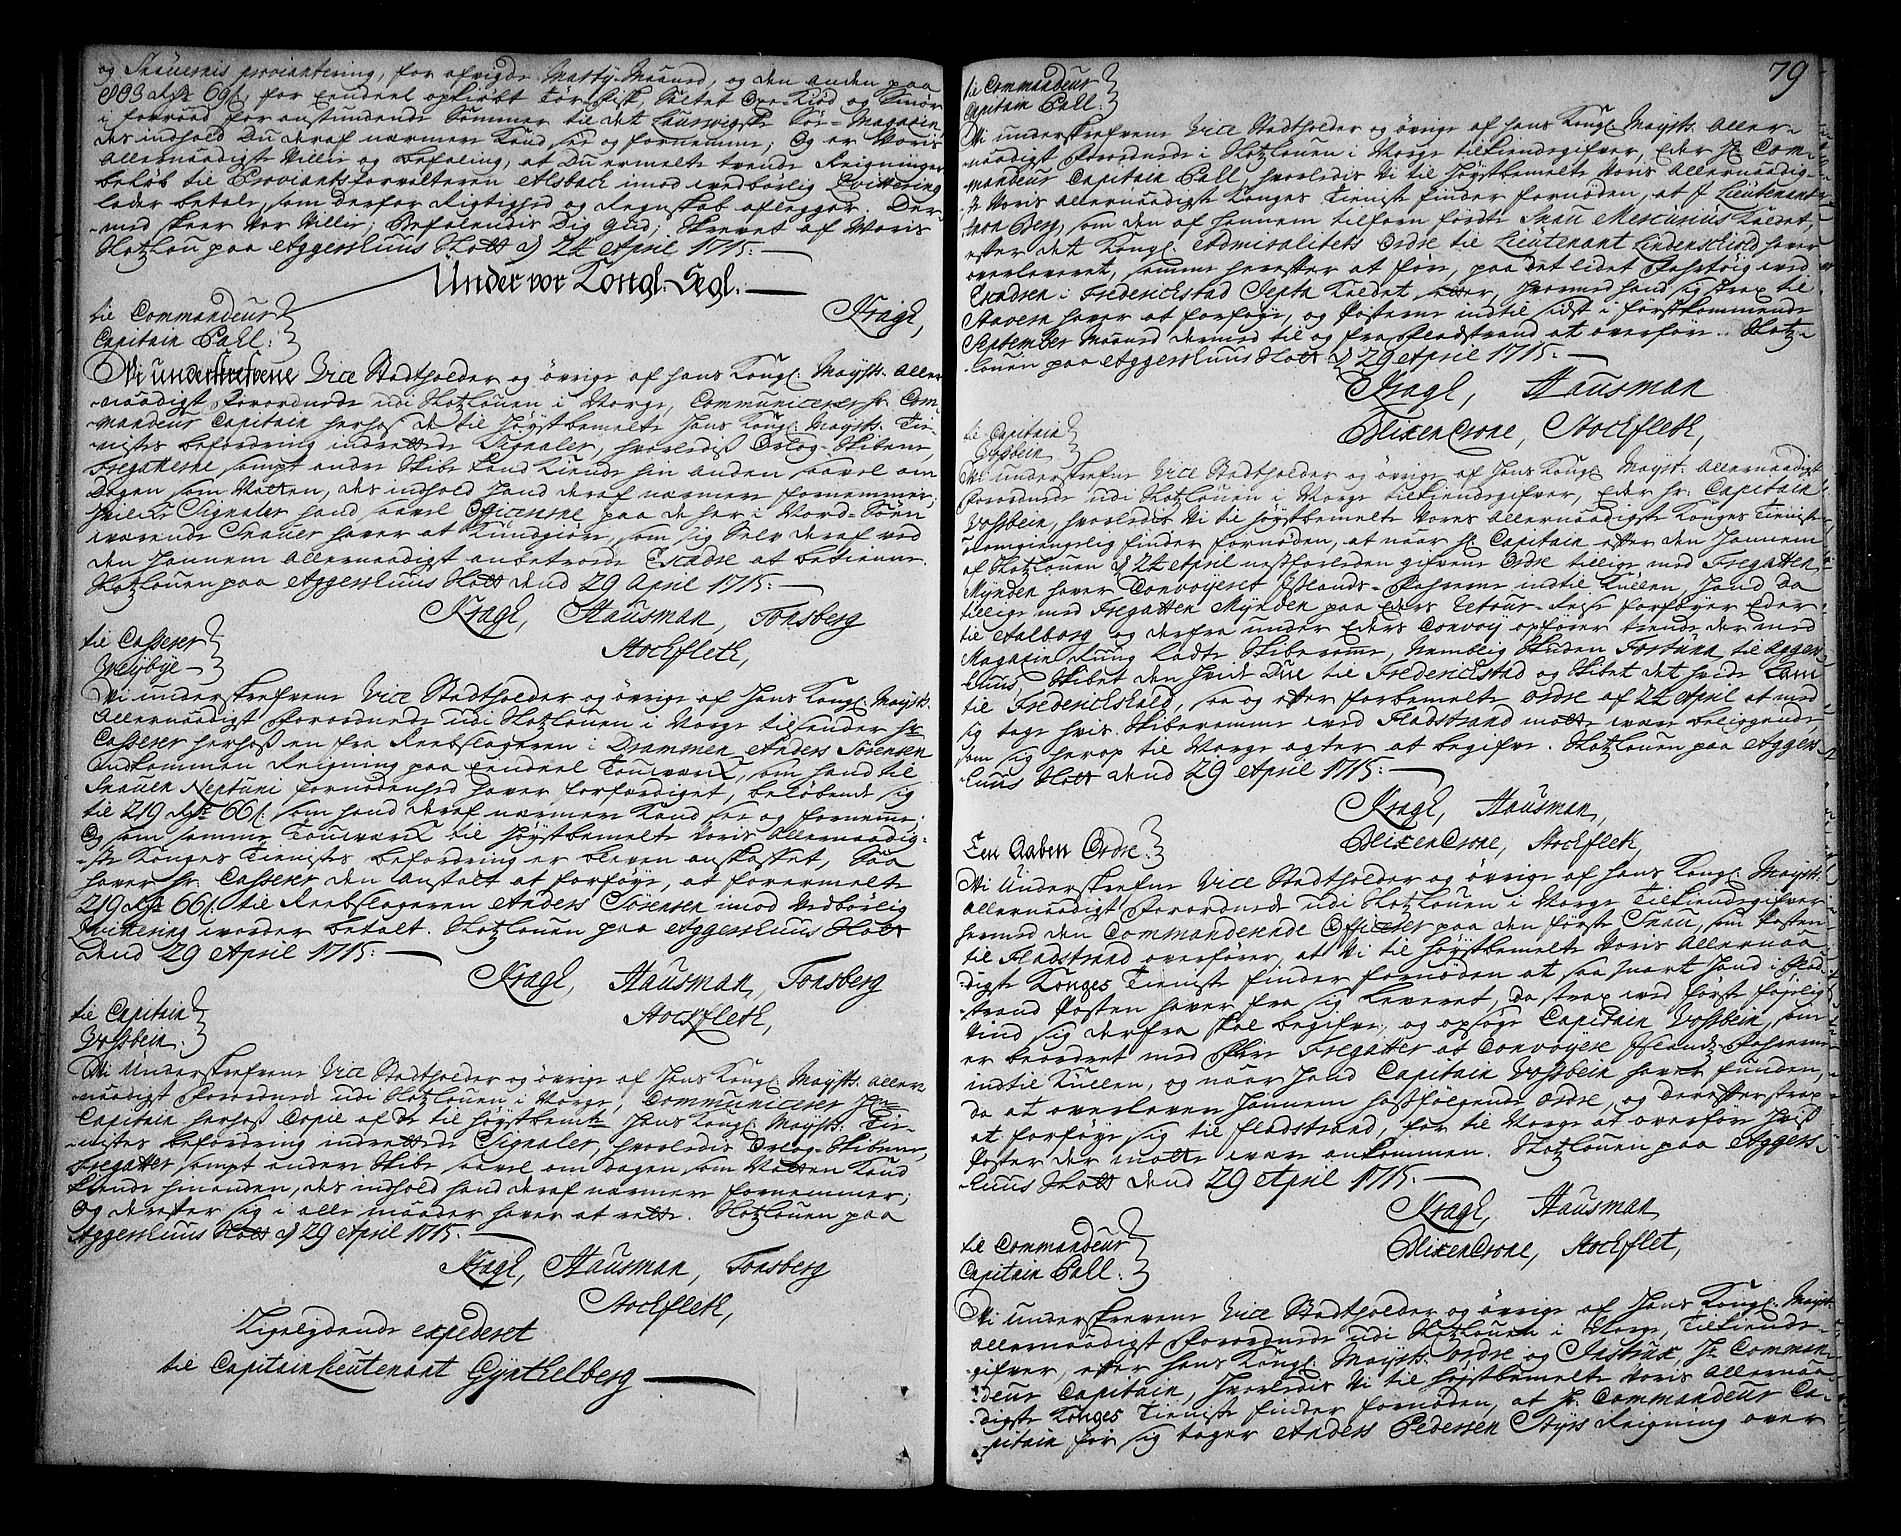 og Snauernis proviantering, for afvigde Marty Maaned, og den anden paa
903 Rdr 69 s. for Eendeel opkiøbt Tør-Fisk, Saltet Oxe-Kiød og Smør
i forraad for anstundende Sommer til det Laurvigske Søe-Magasin,
des indhold Du deraf nærmere Kand see og fornemme; Og er Voris
Allernaadigste Villie og befaling, at Du ermelte tvende Reigninger
beløb til Proviantforvalteren Alsbach imod vedbørlig Qvittering
lader betale, som derfor Rigtighed og Regnskab aflegger. Der-
-med skeer Vor Villie, Befalendis Dig Gud; Skrevet af Voris
Slotzlou paa Aggershuus Slott d 24 April 1715.
Under vor Kongl. Segl.
Kragh,
til Commandeur
Capitain Pall.
Vi underskrefvene Vice Stadtholder og øvrige af hans Kongl. Mayts. Aller-
-naadigst Forordnede udi Slotzlouen i Norge, Communicerer hr. Com-
mandeur Capitain herhos de til høystbemelte Hans Kongl. Mayts. Tie-
-nistes befordring indrettede Signaler, hvorledis Orlog-Skibene,
Fregatterne, sampt andre Skibe Kand Kiende hin anden saavel om
Dagen som Natten, des indhold hand deraf nærmere fornemmer;
Hvilke Signaler hand saavel Officererne paa de her i Nord-Søen
værende Snauer haver at Kundgiøre, som sig Selv deraf ved
den hannem allernaadigst anbetroede Escadre at betiene.
Slotzlouen paa Aggershuus Slott dend 29 April 1715.
Kragh, Hausman, Tonsberg
Stockfleth,
til Casserer
Weybye
Vi underskrefvene Vice Stadtholder og øvrige af Hans Kongl. Mayts.
Allernaadigst Forordnede udi Slotzlouen i Norge tilsender hr
Casserer herhos en fra Reebslageren i Drammen Anders Sørensen
indkommen Reigning paa Eendeel Touværk, som hand til
Snauen Neptuni fornødenhed haver forfærdiget, beløbende sig
til 219 Rdr 66 s. som hand deraf nærmere Kand see og fornemme;
Og som samme Touværk til Høystbemelte Voris Allernaadig-
-ste Konges Tienistes befordring er bleven anskaffet, Saa
haver hr. Casserer den Anstalt at forføye, at forermelte
219 Rdr 66 s. til Reebslageren Anders Sørensen imod Vedbørlig
Qvittering vorder betalt. Slotzlouen paa Aggershuus Slott
Dend 29 April 1715.
Kragh, Hausman, Tonsberg
Stockfleth,
til Capitain
Vosbein.
Vi Underskrefvene Vice Stadtholder og øvrige af Hans Kongl. Mayts. Aller-
-naadigst Forordnede udi Slotzlouen i Norge, Communicerer Hr.
Capitain herhos Copie af De til høystbemte Hans Kongl. Mayts. Tie-
-nistes befordring indrettede Signaler, hvorledis Orlog-Skibene,
Fregatter, sampt andere Skibe saavel om dagen, som Natten Kand
Kiende hinanden, des indhold hand deraf nærmere fornemmer;
Og derefter sig i alle maader haver at rette. Slotzlouen paa
Aggershuus Slott d 29 April 1715.
Kragh, Hausman, Tonsberg
Stockfleth,
Ligelydende expederet
til Capitain Lieutenant Gyntelberg
79
til Commandeur
Capitain Pall.
Vi underskrefvene Vice Stadtholder og øvrige af Hans Kongl. Mayts. Aller-
-naadigst Forordnede i Slotzlouen i Norge tilkiendegifver, Eder hr Com-
mandeur Capitain Pall, hvorledis Vi til høystbemelte Voris Allernaadig-
ste Konges Tieniste finder fornøden, at hr Lieutenant
von Berg, som den af hannem tilforn førte Snau Mercurius Kaldet,
efter det Kongl. Admiralitets Ordre til Lieutenant Lindenschiold haver
overleveret, samme herefter at føre, paa det lidet Fahrtøig ved
Escadren i Friderichstad Jepta Kaldet, hvormed hand sig strax til
Stavern haver at forføye, og Posterne indtil sidst i førstkommende
September Maaned dermed til og fra Fladstrand at overføre. Slotz-
louen paa Aggershuus Slott d 29 April 1715.
Kragh, Hausman
BlixenCrone, Stockfleth,
til Capitain
Vosbein
Vi underskrefne Vice Stadtholder og øvrige af Hans Kongl. Mayts. Allernaadigst
Forordnede udi Slotzlouen i Norge tilkiendegifver, Eder hr. Capitain
Vosbein, hvorledis Vi til høystbemelte Voris Allernaadigste Konges Tieniste
uomgiengelig finder fornøden, at naar hr. Capitain efter den Hannem
af Slotzlouen d 24 April nestforleden gifvene Ordre tillige med Fregatten
Mynden haver Convoyeret Islands-Farerne indtil Kullen, Hand da
tillige med Fregatten Mynden paa Eders Retour-Reyse forføyer Eder
til Aalborg og derfra under Eders Convoy opfører tvende der med
Magasin Rug ladte Skibe, Nemblig Skuden Fortuna til Agger-
-huus, Skibet den Hvide Due til Friderichstad og Skibet det hvide Lam
til Friderichshald, saa og efter forbemelte Ordre af 24 April at med
sig tage hvis Skiberomme ved Fladstrand motte være beliggende
som sig herop til Norge agter at begifve. Slotzlouen paa Aggers-
-huus Slott dend 29 April 1715.
Kragh, Hausman,
BlixenCrone, Stockfleth,
Een Aaben Ordre.
Vi Underskrefne Vice Stadtholder og øvrige af Hans Kongl. Mayts.
Allernaadigst Forordnede udi Slotzlouen i Norge Tilkiendegifver
hermed den Commanderende Officerer paa den første Snau, som Posten
til Fladstrand overfører, at Vi til Høystbemelte Voris Allernaa-
-digste Konges Tieniste finder fornøden at saa snart hand i Flad-
-strand Posten haver fra sig leveret, da strax ved første føyelig
Vind sig derfra skal begifve, og opsøge Capitain Vosbein, som
er beordret med fleere Fregatter at Convoyere Islands-Farerne
indtil Kullen, og naar hand Capitain Vosbein haver funden,
da at overlevere hannem hosfølgende Ordre, og derefter strax
at forføye sig til Fladstrand, for til Norge at overføre hvis
Poster der motte være ankommen. Slotzlouen paa Aggers-
-huus Slott dend 29 April 1715.
Kragh, Hausman
BlixenCrone, Stockflet,
til Commandeur
Capitain Pall.
Vi underskrevene Vice Stadtholder og øvrige af Hans Kongl. Mayts.
Allernaadigst Forordnede udi Slotzlouen i Norge, Tilkiende-
gifver, efter Hans Kongl. Mayts. Ordre og Instrux, hr Comman-
deur Capitain, hvorledis Vi til høystbemelte Voris Allernaa-
-digste Konges Tieniste finder fornøden, at hr. Commandeur Ca-
-pitain for sig tager Anders Pedersen Styrs Reigning over